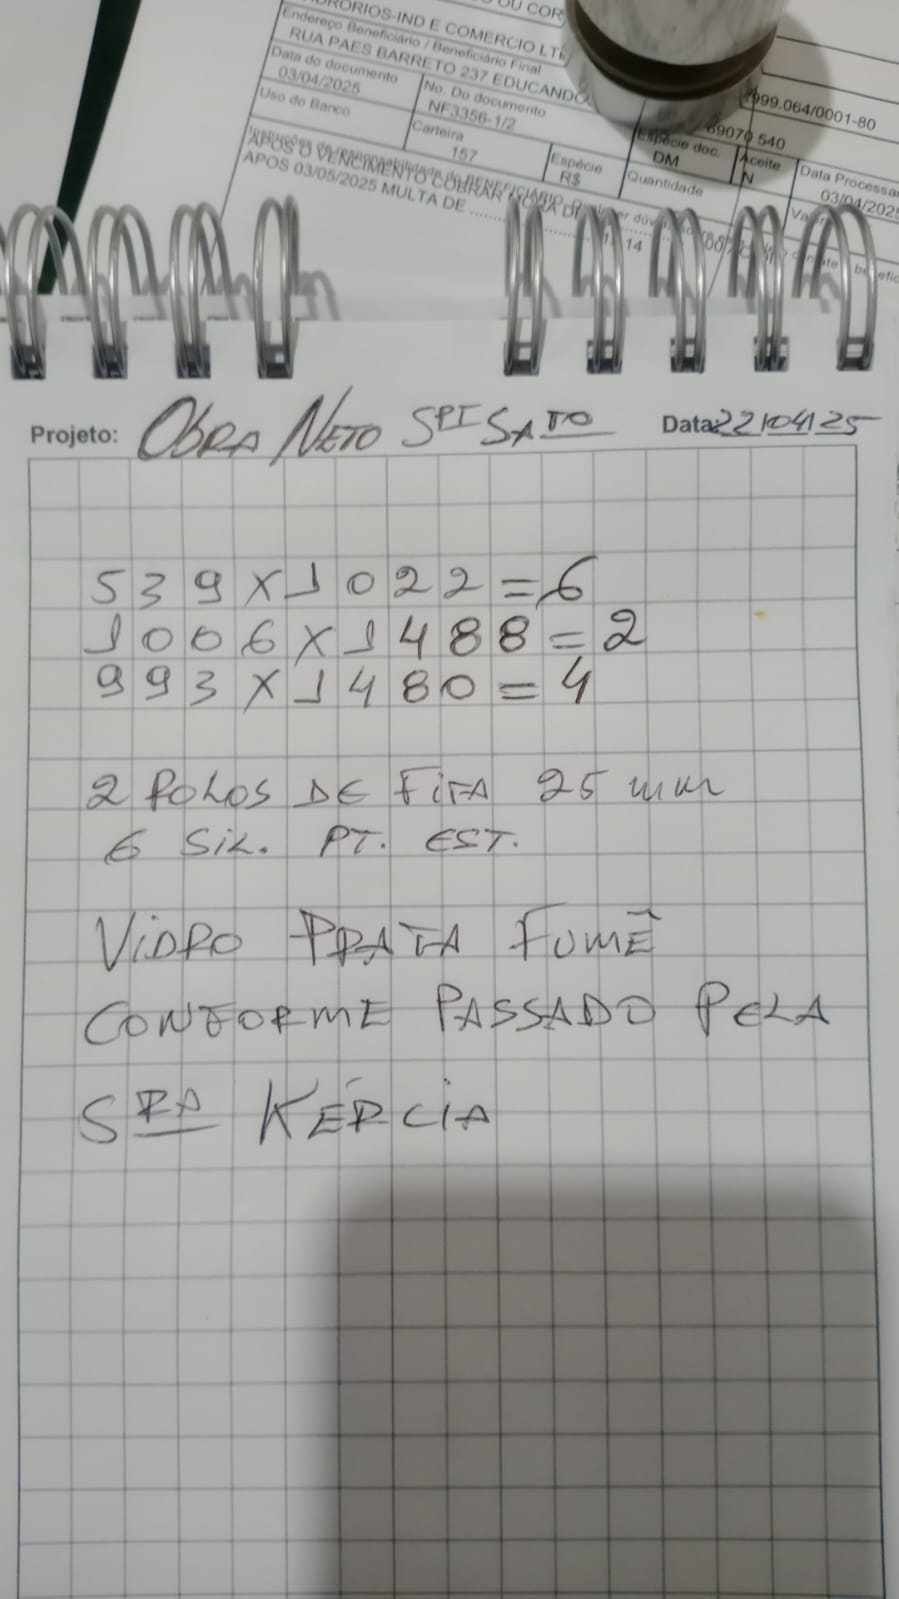 OU COR
ADRORIOS-IND E COMERCIO LT
Endereço Beneficiário / Beneficiário Final
RUA PAES BARRETO 237 EDUCANDO
999.064/0001-80
69070 540
Data do documento
03/04/2025
No. Do documento
NF3356-1/2
Espécie doc.
DM
Aceite
N
Data Processa
03/04/2025
Uso do Banco
Carteira
157
Espécie
R$
Quantidade
APOS O VENCIMENTO COBRAR MORA DE
APOS 03/05/2025 MULTA DE
Projeto: OBRA NETO SPISATO Data: 22/04/25
539 X 1022 = 6
1006 X 1488 = 2
993 X 1480 = 4
2 ROLOS DE FITA 25 mm
6 SIL. PT. EST.
VIDRO PRATA FUMÊ
CONFORME PASSADO PELA
SRA KÉRCIA